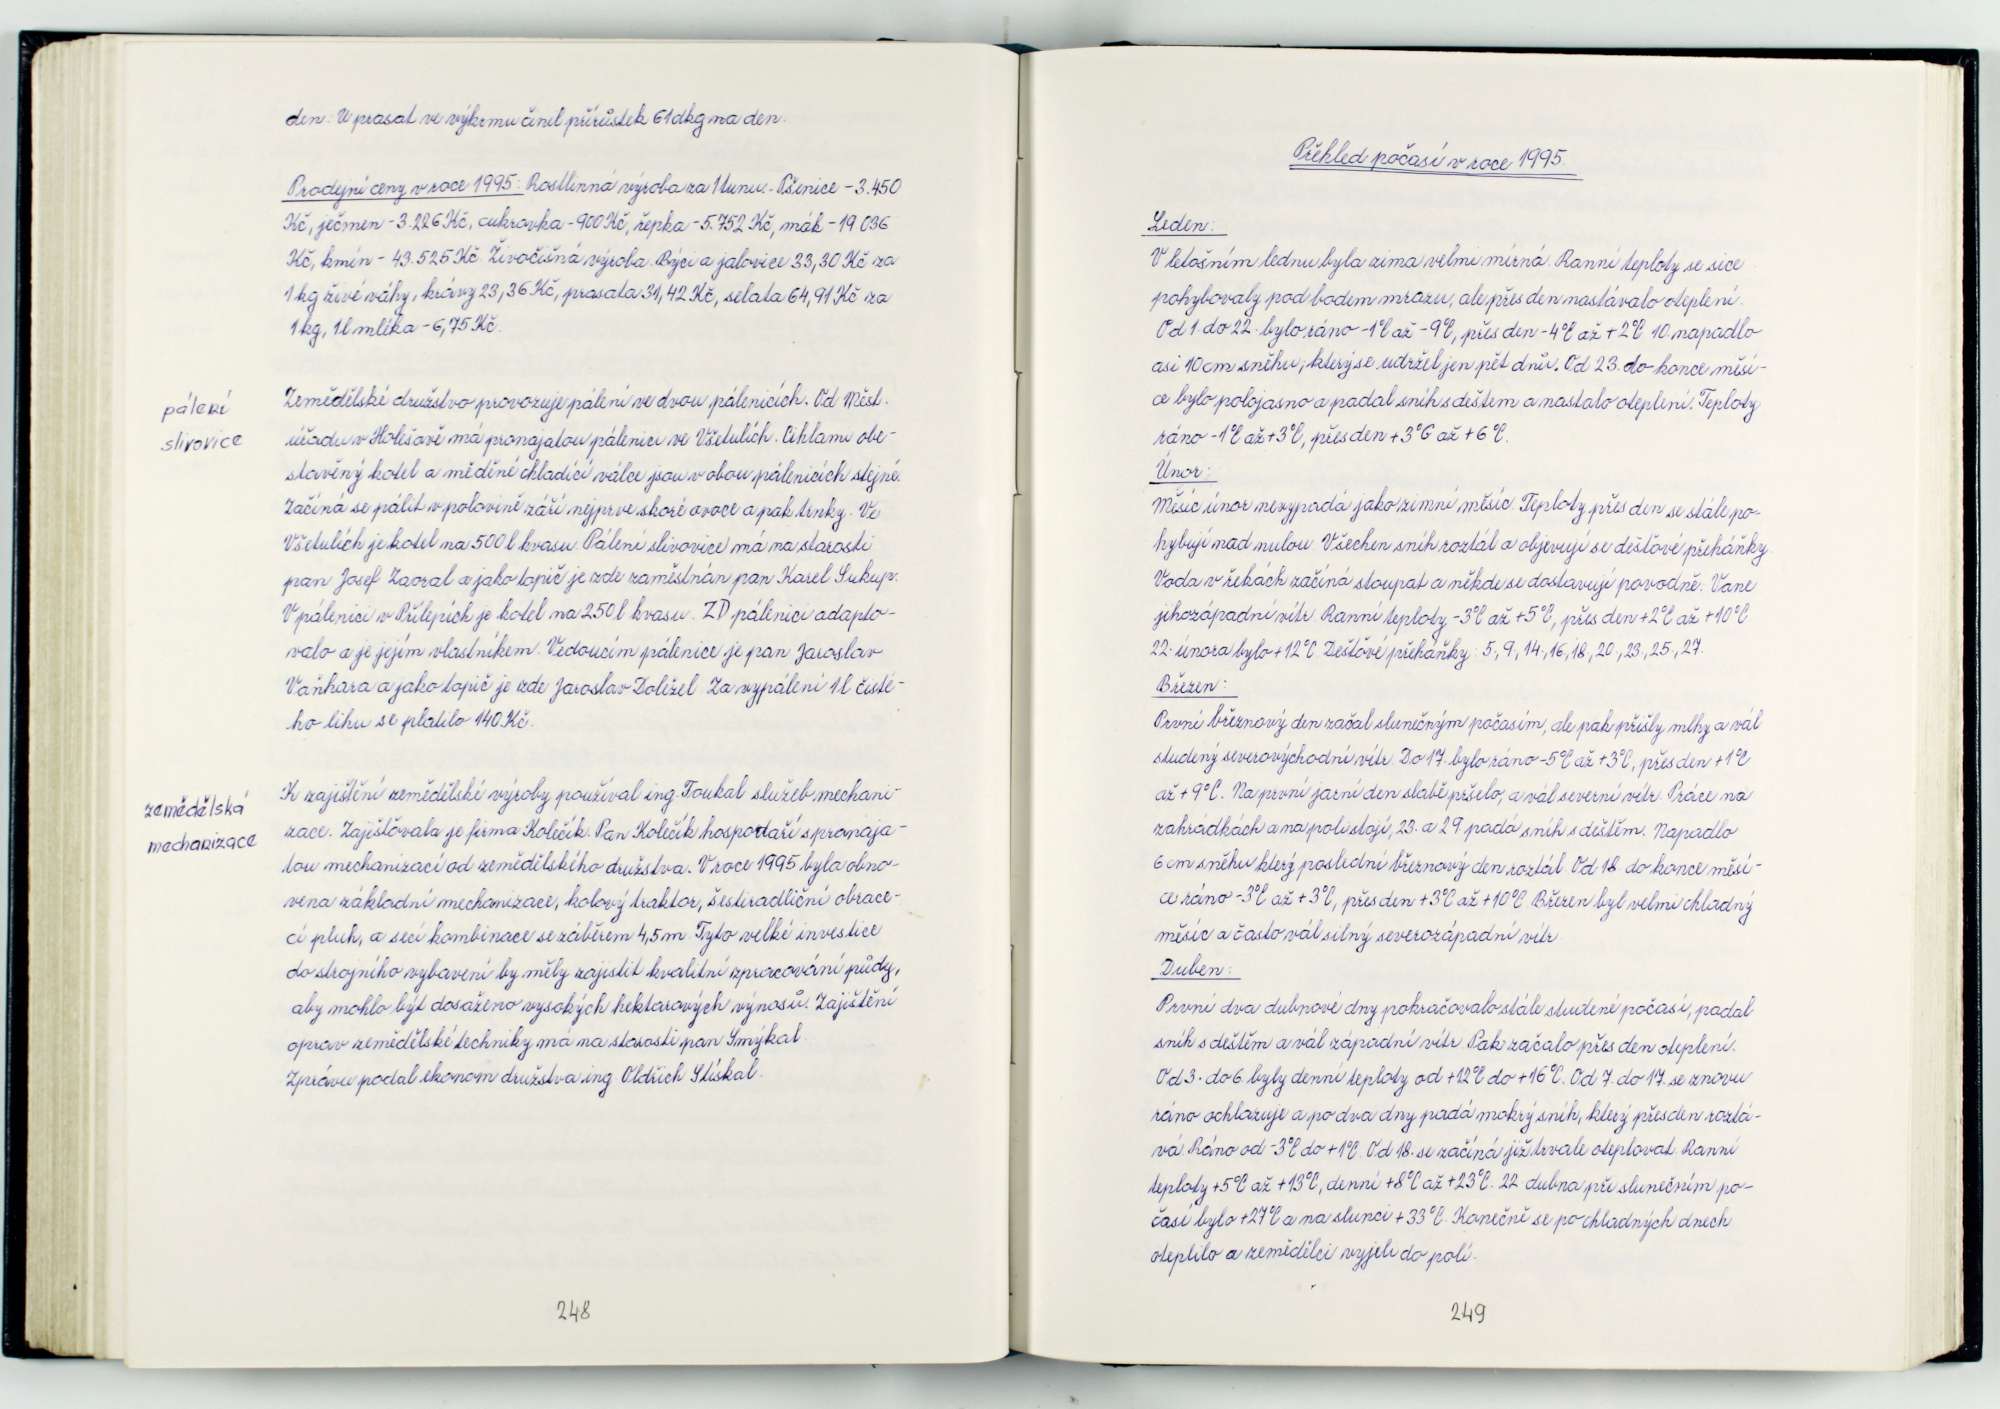 den. U prasat ve výkrmu činil přírůstek 61dkg na den.
Prodejní ceny v roce 1995: Rostlinná výroba za 1 tunu. Pšenice - 3.450
Kč, ječmen - 3.226 Kč, cukrovka - 900 Kč, řepka - 5.752 Kč, mák - 19 036
Kč, kmín - 43.525 Kč. Živočišná výroba. Býci a jalovice 33,30 Kč za
1 kg živé váhy, krávy 23,36 Kč, prasata 31,42 Kč, selata 64,91 Kč za
1 kg, 1 l mléka - 6,75 Kč.
pálení
slivovice
Zemědělské družstvo provozuje pálení ve dvou pálenicích. Od Měst.
úřadu v Holešově má pronajatou pálenici ve Všetulích. Cihlami obe-
stavěný kotel a měděné chladící válce jsou v obou pálenicích stejné.
Začíná se pálit v polovině září nejprve skoré ovoce a pak trnky. Ve
Všetulích je kotel na 500 l kvasu. Pálení slivovice má na starosti
pan Josef Zaoral a jako topič je zde zaměstnán pan Karel Sukup.
V pálenici v Přílepích je kotel na 250 l kvasu. ZD pálenici adapto-
valo a je jejím vlastníkem. Vedoucím pálenice je pan Jaroslav
Vaňhara a jako topič je zde Jaroslav Doležel. Za vypálení 1 l čisté-
ho lihu se platilo 140 Kč.
zemědělská
mechanizace
K zajištění zemědělské výroby používal ing. Toukal služeb mechani-
zace. Zajišťovala je firma Kolečík. Pan Kolečík hospodaří s pronaja-
tou mechanizací od zemědělského družstva. V roce 1995 byla obno-
vena základní mechanizace, kolový traktor, šestiradliční obrace-
cí pluh, a secí kombinace se záběrem 4,5 m. Tyto velké investice
do strojního vybavení by měly zajistit kvalitní zpracování půdy,
aby mohlo být dosaženo vysokých hektarových výnosů. Zajištění
oprav zemědělské techniky má na starosti pan Smýkal.
Zprávu podal ekonom družstva ing. Oldřich Stískal.
248
Přehled počasí v roce 1995.
Leden:
V letošním lednu byla zima velmi mírná. Ranní teploty se sice
pohybovaly pod bodem mrazu, ale přes den nastávalo oteplení.
Od 1. do 22. bylo ráno -1°C až -9°C, přes den -4°C až +2°C. 10. napadlo
asi 10 cm sněhu, který se udržel jen pět dnů. Od 23. do konce měsí-
ce bylo polojasno a padal sníh s deštěm a nastalo oteplení. Teploty
ráno -1°C až +3°C, přes den +3°C až +6°C.
Únor:
Měsíc únor nevypadá jako zimní měsíc. Teploty přes den se stále po-
hybují nad nulou. Všechen sníh roztál a objevují se dešťové přeháňky.
Voda v řekách začíná stoupat a někde se dostavují povodně. Vane
jihozápadní vítr. Ranní teploty -3°C až +5°C, přes den +2°C až +10°C
22. února bylo +12°C. Dešťové přeháňky: 5., 9., 14., 16., 18., 20., 23., 25., 27.
Březen:
První březnový den začal slunečným počasím, ale pak přišly mlhy a vál
studený severovýchodní vítr. Do 17. bylo ráno -5°C až +3°C, přes den +1°C
až +9°C. Na první jarní den slabě pršelo, a vál severní vítr. Práce na
zahrádkách a na poli stojí, 23. a 29. padá sníh s deštěm. Napadlo
6 cm sněhu který poslední březnový den roztál. Od 18. do konce měsí-
ce ráno -3°C až +3°C, přes den +3°C až +10°C. Březen byl velmi chladný
měsíc a často vál silný severozápadní vítr.
Duben:
První dva dubnové dny pokračovalo stále studené počasí, padal
sníh s deštěm a vál západní vítr. Pak začalo přes den oteplení.
Od 3. do 6. byly denní teploty od +12°C do +16°C. Od 7. do 17. se znovu
ráno ochlazuje a po dva dny padá mokrý sníh, který přes den roztá-
vá. Ráno od -3°C do +1°C. Od 18. se začíná již trvale oteplovat. Ranní
teploty +5°C až +13°C, denní +8°C až +23°C. 22. dubna při slunečním po-
časí bylo +27°C a na slunci +33°C. Konečně se po chladných dnech
oteplilo a zemědělci vyjeli do polí.
249